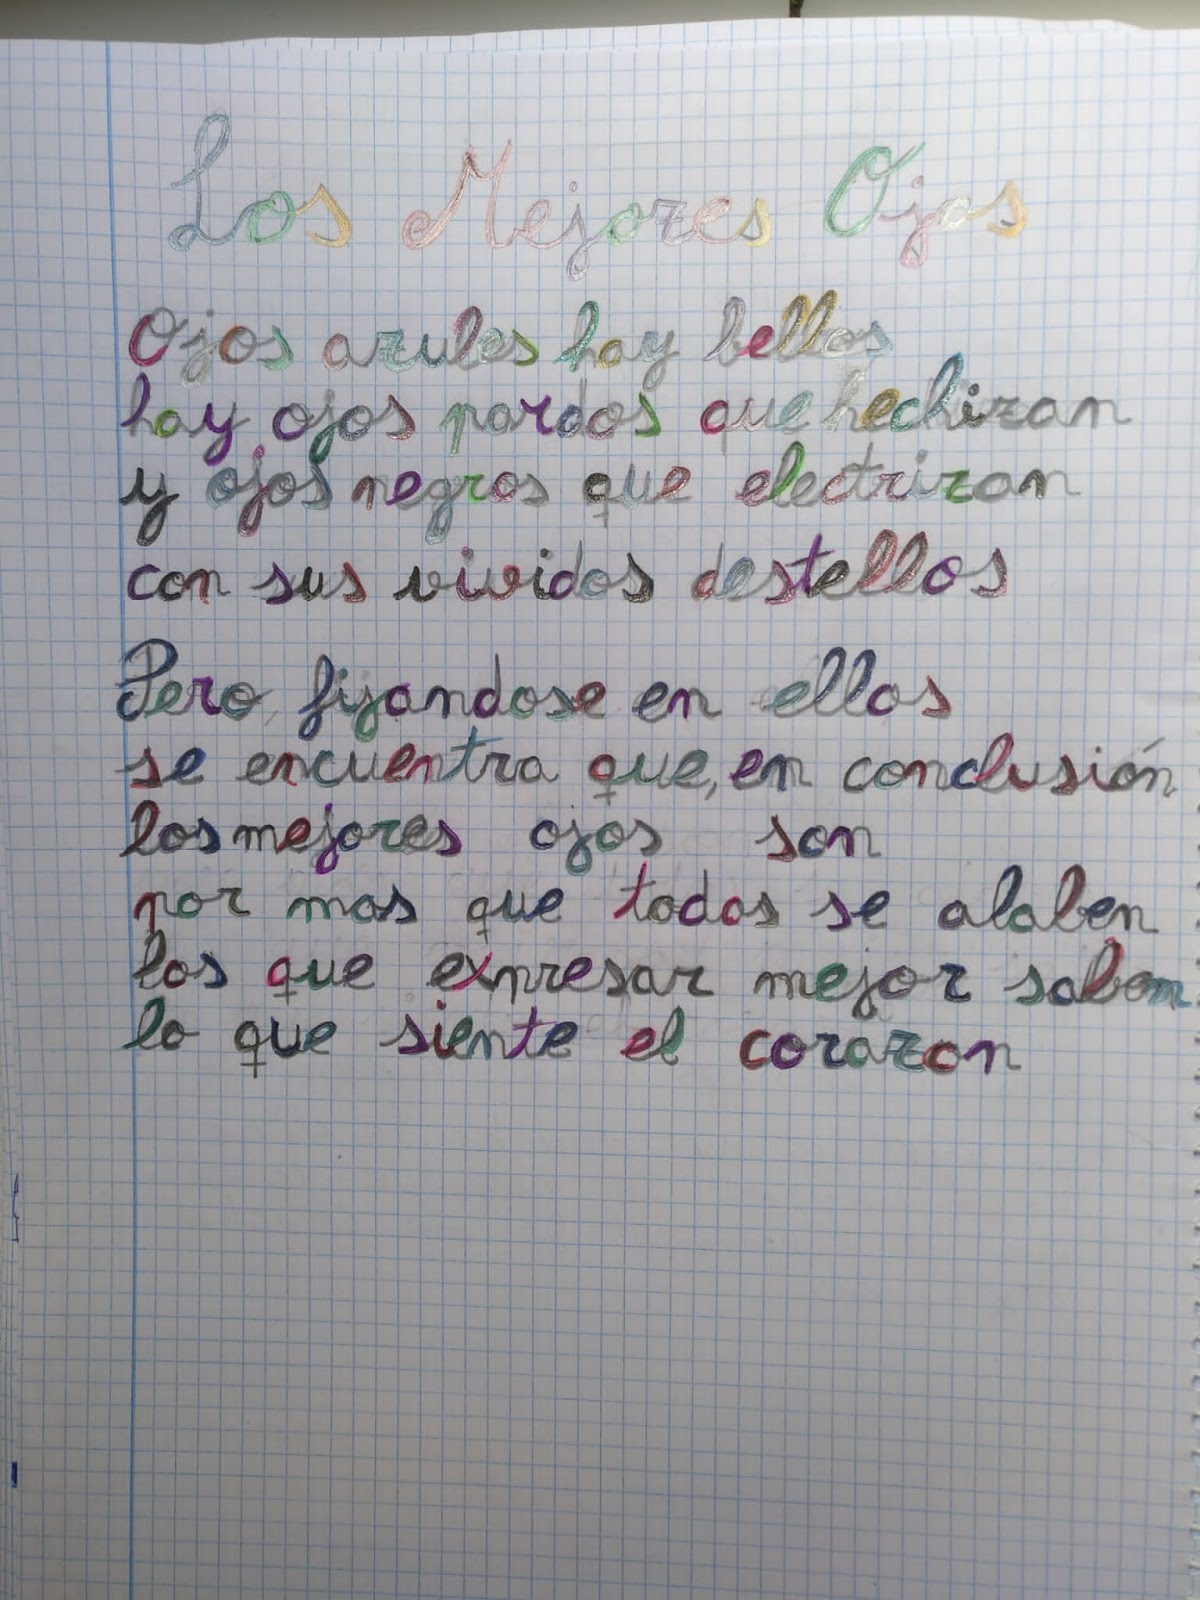 Los Mejores Ojos
Ojos azules hay bellos
hay ojos pardos que hechizan
y ojos negros que electrizan
con sus vividos destellos
Pero, fijandose en ellos
se encuentra que, en conclusión
los mejores ojos son
por mas que todos se alaben
los que expresar mejor saben
lo que siente el corazon